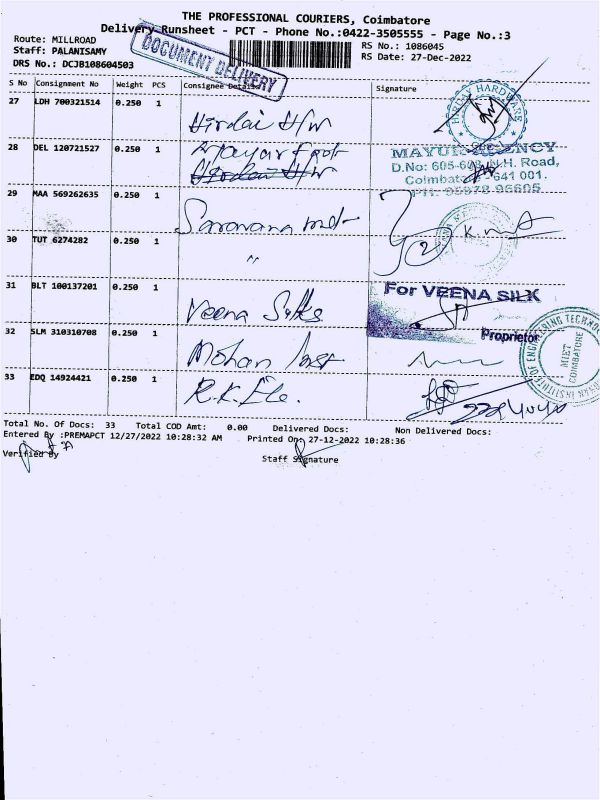 THE PROFESSIONAL COURIERS, Coimbatore
Delivery Runsheet - PCT - Phone No.:0422-3505555 - Page No.:3
Route: MILLROAD
Staff: PALANISAMY
DRS No.: DCJB108604503
DOCUMENT DELIVERY
RS No.: 1086045
RS Date: 27-Dec-2022
S No Consignment No Weight PCS Consignee Details Signature
27 LDH 700321514 0.250 1 Hirdai H/W
HARDWARE
28 DEL 120721527 0.250 1
Hirdai H/W
MAYUR AGENCY
D.No: 605-608, N.H. Road,
Coimbatore - 641 001.
29 MAA 569262635 0.250 1 Saravana
30 TUT 6274282 0.250 1 "
31 BLT 100137201 0.250 1 Veena Silks
For VEENA SILK
Proprietor
32 SLM 310310708 0.250 1 Mohan
ENGINEERING TECHNO
MIET
COIMBATORE
33 EDQ 14924421 0.250 1 R.K. Ele.
Total No. Of Docs: 33 Total COD Amt: 0.00 Delivered Docs: Non Delivered Docs:
Entered By :PREMAPCT 12/27/2022 10:28:32 AM Printed On: 27-12-2022 10:28:36
Verified By
Staff Signature